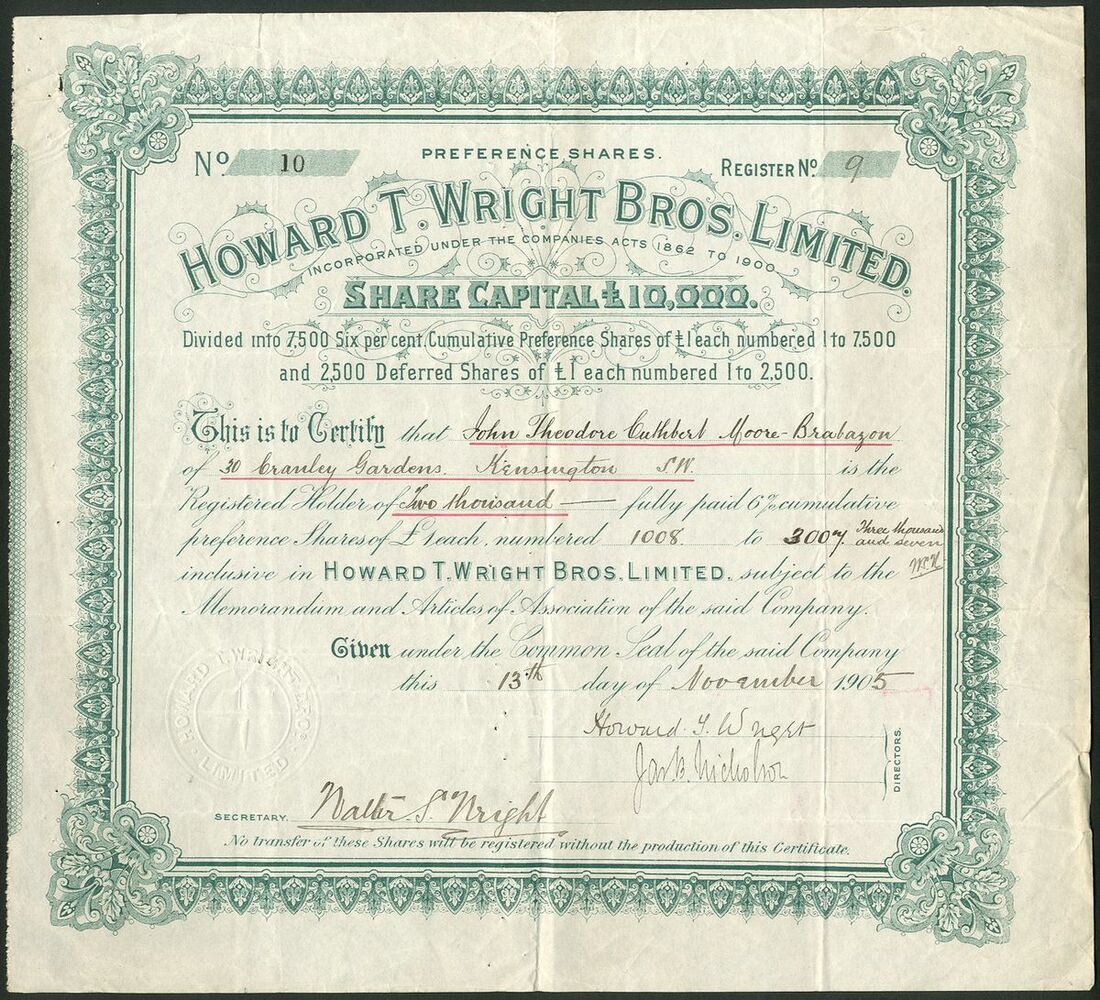 No 10
PREFERENCE SHARES.
REGISTER No. 9
HOWARD T. WRIGHT BROS. LIMITED.
INCORPORATED UNDER THE COMPANIES ACTS 1862 TO 1900
SHARE CAPITAL £10,000.
Divided into 7,500 Six per cent. Cumulative Preference Shares of £1 each numbered 1 to 7.500
and 2,500 Deferred Shares of £1 each numbered 1 to 2,500.
This is to Certify that John Theodore Cuthbert Moore-Brabazon
of 30 Cranley Gardens. Kensington S.W. is the
Registered Holder of Two thousand — fully paid 6% cumulative
preference Shares of £1 each, numbered 1008 to 3007 Three thousand and seven
inclusive in HOWARD T. WRIGHT BROS. LIMITED, subject to the
Memorandum and Articles of Association of the said Company.
Given under the Common Seal of the said Company
this 13th day of November 1905
HOWARD T. WRIGHT BROS. LIMITED
Howard T. Wright
Jack Nicholson
DIRECTORS.
SECRETARY. Walter S. Wright
No transfer of these Shares will be registered without the production of this Certificate.